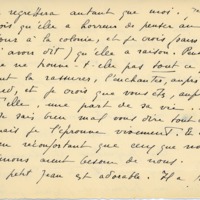 regrettera autant que moi.
qu'elle a horreur de penser au
à la colonie, et je crois (sans
avoir dit) qu'elle a raison.
ne pourra-t-elle pas tout ce
la rassurer, l'enchanter, auprès
et je crois que vous êtes, auprès
d'elle, une part de sa vie
sais bien mal vous dire tout
mais je l'éprouve vraiment.
réconfortant que ceux que nous
aient besoin de nous.
petit Jean est adorable. Il a